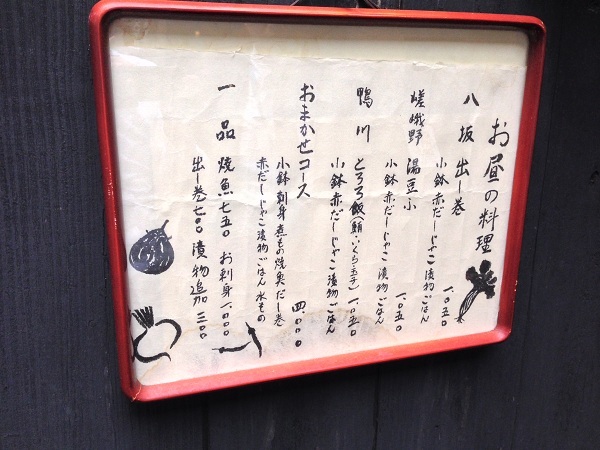 お昼の料理
八坂 出し巻
小鉢赤だしじゃこ漬物ごはん 一、〇五〇
嵯峨野 湯豆ふ
小鉢赤だしじゃこ漬物ごはん 一、〇五〇
鴨川 とろろ飯(鮪・いくら・玉子) 一、〇五〇
小鉢赤だしじゃこ漬物ごはん
おまかせコース
小鉢刺身煮もの焼魚だし巻 四、〇〇〇
赤だしじゃこ漬物ごはん水もの
一品 焼魚七五〇 お刺身一、〇〇〇
出し巻七〇〇 漬物追加三〇〇